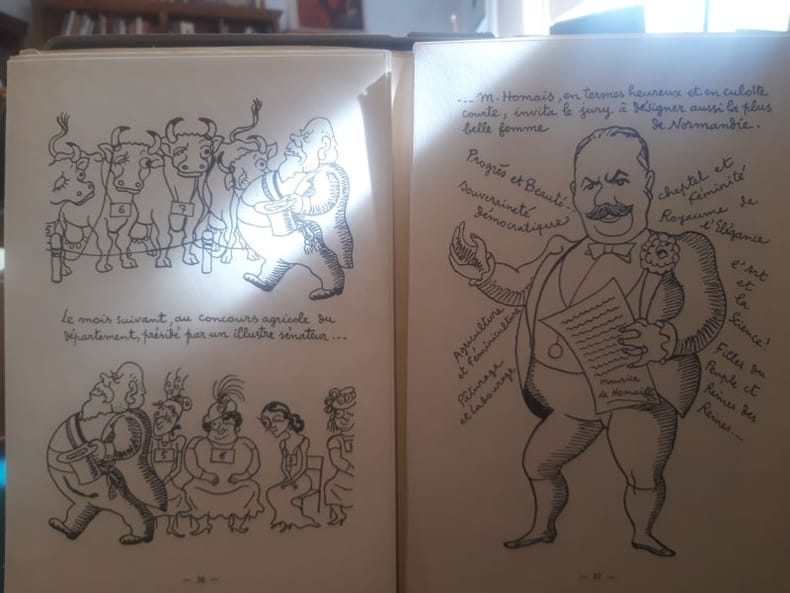 6
7
5
Le mois suivant, au concours agricole du
département, présidé par un illustre sénateur...
5
6
7
— 36 —
... M. Homais, en termes heureux et en culotte
courte, invita le jury à désigner aussi la plus
belle femme de Normandie.
Progrès et Beauté.
Souveraineté
démocratique
cheptel et
Féminité
Royaume de
l'Élégance
l'Art
et la
Science!
Agriculture
et Féminiculture
Pâturage
et Labourage
Filles du
Peuple et
Reines des
Reines...
maurice
de Homaille
— 37 —